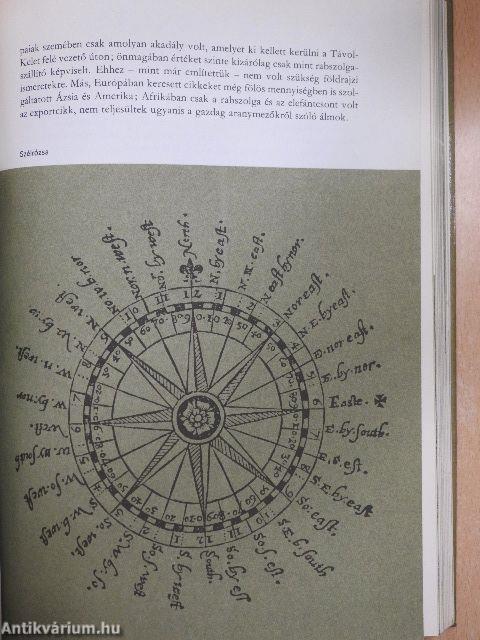 paiak szemében csak amolyan akadály volt, amelyet ki kellett kerülni a Távol-
Kelet felé vezető úton; önmagában értéket szinte kizárólag csak mint rabszolga-
szállító képviselt. Ehhez – mint már említettük – nem volt szükség földrajzi
ismeretekre. Más, Európában keresett cikkeket még fölös mennyiségben is szol-
gáltatott Ázsia és Amerika; Afrikában csak a rabszolga és az elefántcsont volt
az exportcikk, nem teljesültek ugyanis a gazdag aranymezőkről szóló álmok.
Szélrózsa
North.
N. by east.
N. n. east.
N east by nor.
Nor. east.
N. E. by east.
E. nor east.
E. by nor.
Easte.
E. by south.
E. s. est.
S. E. by east
So. east.
S E. b south
So s. est.
So. by est
South.
S. by west
So. s. west
So. west.
W. so. west
W. by south
West.
W. by nor
W. n. west.
N. west.
No. w. b nor
Nor. n. west.
No. b. west
Antikvárium.hu